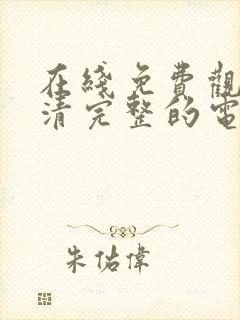 在綫免費觀
清完整的電
朱佑偉